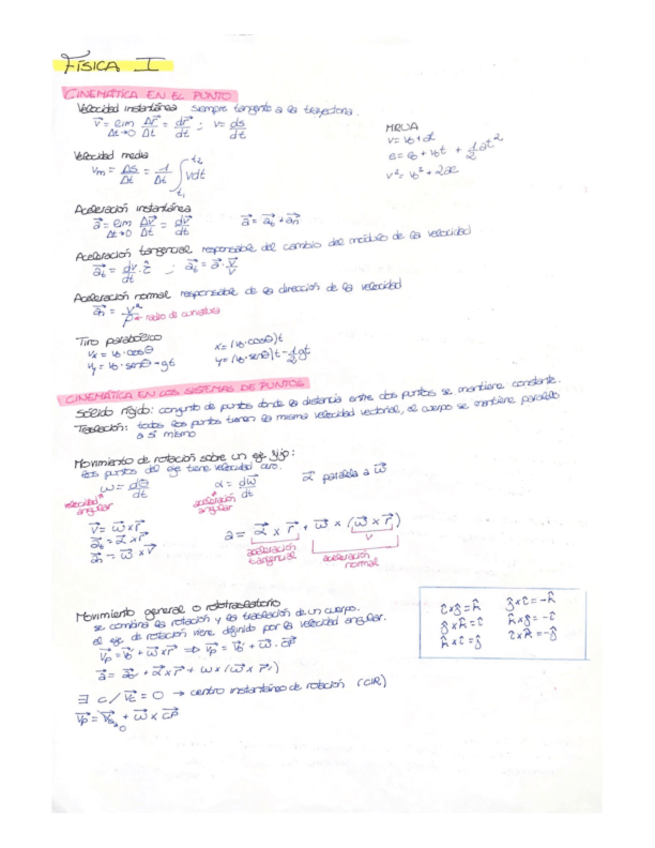 FÍSICA I
CINEMÁTICA EN EL PUNTO
Velocidad instantánea siempre tangente a la trayectoria.
v⃗ = lim Δt→0 Δr⃗/Δt = dr⃗/dt ; v = ds/dt
MRUA
v = v₀ + at
s = s₀ + v₀t + 1/2 at²
v² = v₀² + 2as
Velocidad media
vm = Δs/Δt = 1/Δt ∫ t₁ t₂ v dt
Aceleración instantánea
a⃗ = lim Δt→0 Δv⃗/Δt = dv⃗/dt a⃗ = a⃗t + a⃗n
Aceleración tangencial responsable del cambio del módulo de la velocidad
a⃗t = dv/dt · τ̂ ; a⃗t = a⃗ · v⃗/v
Aceleración normal responsable de la dirección de la velocidad
a⃗n = v²/ρ ← radio de curvatura
Tiro parabólico
vx = v₀·cosθ x = (v₀·cosθ)t
vy = v₀·senθ - gt y = (v₀·senθ)t - 1/2 gt
CINEMÁTICA EN LOS SISTEMAS DE PUNTOS
Sólido rígido: conjunto de puntos donde la distancia entre dos puntos se mantiene constante.
Traslación: todos los puntos tienen la misma velocidad vectorial, el cuerpo se mantiene paralelo
a sí mismo
Movimiento de rotación sobre un eje fijo:
los puntos del eje tiene velocidad cero.
ω = dθ/dt α = dω⃗/dt α⃗ paralela a ω⃗
velocidad angular aceleración angular
v⃗ = ω⃗ x r⃗
a⃗t = α⃗ x r⃗
a⃗n = ω⃗ x v⃗
a = α⃗ x r⃗ + ω⃗ x (ω⃗ x r⃗)
v
aceleración tangencial aceleración normal
Movimiento general o rototraslatorio
se combina la rotación y la traslación de un cuerpo.
el eje de rotación viene definido por la velocidad angular.
v⃗p = v⃗₀ + ω⃗ x r⃗ ⇒ v⃗p = v⃗₀ + ω⃗ . OP
a⃗ = a⃗₀ + α⃗ x r⃗ + ω x (ω⃗ x r⃗)
∃ C / v⃗c = 0 → centro instantáneo de rotación (CIR)
v⃗p = + ω⃗ x CP
0
î x ĵ = k̂ ĵ x î = -k̂
ĵ x k̂ = î k̂ x ĵ = -î
k̂ x î = ĵ î x k̂ = -ĵ